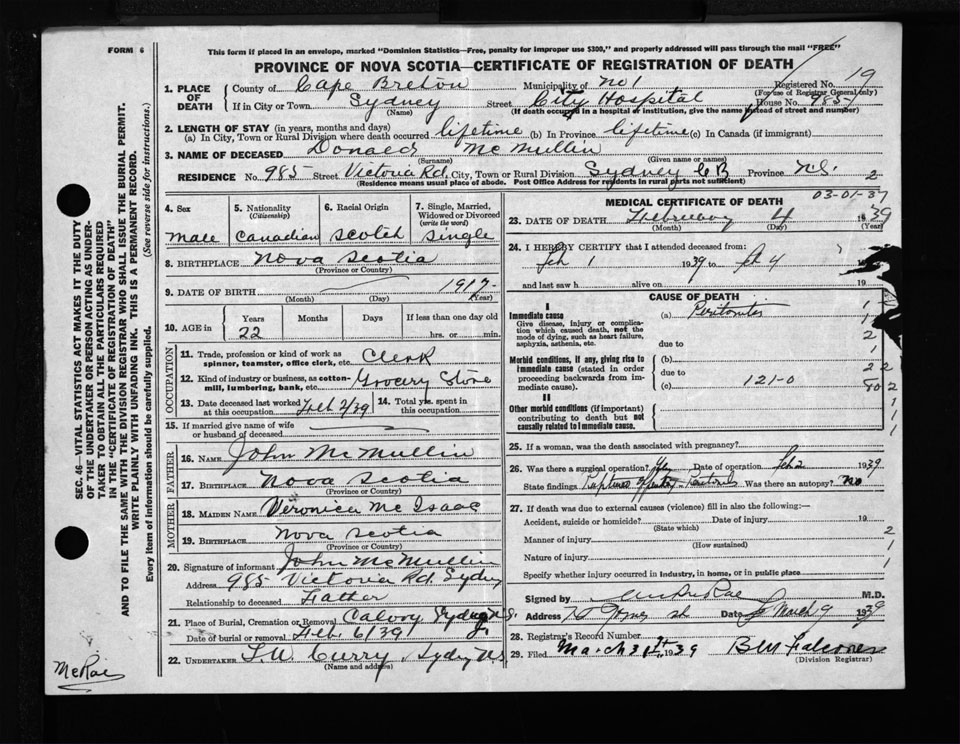 FORM 6
This form if placed in an envelope, marked "Dominion Statistics—Free, penalty for improper use $300," and properly addressed will pass through the mail "FREE"
PROVINCE OF NOVA SCOTIA—CERTIFICATE OF REGISTRATION OF DEATH
1. PLACE OF DEATH County of Cape Breton Municipality of No 1 Registered No. 19
(For use of Registrar General only)
If in City or Town Sydney Street City Hospital House No. 985
(Name) (If death occurred in a hospital or institution, give the name instead of street and number)
2. LENGTH OF STAY (in years, months and days)
(a) In City, Town or Rural Division where death occurred lifetime (b) In Province lifetime (c) In Canada (if immigrant)
3. NAME OF DECEASED Donald McMullin
(Surname) (Given name or names)
RESIDENCE No. 985 Street Victoria Rd. City, Town or Rural Division Sydney CB Province NS 2
(Residence means usual place of abode. Post Office Address for residents in rural parts not sufficient)
4. Sex
male
5. Nationality (Citizenship)
Canadian
6. Racial Origin
Scotch
7. Single, Married, Widowed or Divorced (write the word)
Single
8. BIRTHPLACE Nova Scotia
(Province or Country)
9. DATE OF BIRTH 1917
(Month) (Day) (Year)
10. AGE in Years Months Days If less than one day old
22 hrs. or min.
OCCUPATION
11. Trade, profession or kind of work as spinner, teamster, office clerk, etc. Clerk
12. Kind of industry or business, as cotton-mill, lumbering, bank, etc. Grocery Store
13. Date deceased last worked at this occupation Feb 2/39
14. Total yrs. spent in this occupation
15. If married give name of wife or husband of deceased
FATHER
16. NAME John McMullin
17. BIRTHPLACE Nova Scotia
(Province or Country)
MOTHER
18. MAIDEN NAME Veronica McIsaac
19. BIRTHPLACE Nova Scotia
(Province or Country)
20. Signature of informant John McMullin
Address 985 Victoria Rd. Sydney
Relationship to deceased Father
21. Place of Burial, Cremation or Removal Calvory Sydney N.S.
Date of burial or removal Feb. 6/39
22. UNDERTAKER T.W. Curry, Sydney N.S.
(Name and address)
MEDICAL CERTIFICATE OF DEATH
03-01-37
23. DATE OF DEATH February 4 1939
(Month) (Day) (Year)
24. I HEREBY CERTIFY that I attended deceased from:
Feb 1 1939 to Feb 4 19
and last saw h alive on 19
CAUSE OF DEATH
I
Immediate cause (a) Peritonitis
Give disease, injury or complication which caused death, not the mode of dying, such as heart failure, asphyxia, asthenia, etc.
due to
Morbid conditions, if any, giving rise to immediate cause (stated in order proceeding backwards from immediate cause).
(b)
due to
(c) 121-0
II
Other morbid conditions (if important) contributing to death but not causally related to immediate cause.
25. If a woman, was the death associated with pregnancy?
26. Was there a surgical operation? Yes Date of operation Feb 2 1939
State findings Ruptured Peritonitis Was there an autopsy? No
27. If death was due to external causes (violence) fill in also the following:—
Accident, suicide or homicide? Date of injury 19
(State which)
Manner of injury
(How sustained)
Nature of injury
Specify whether injury occurred in industry, in home, or in public place
Signed by M.D.
Address Date March 9 1939
28. Registrar's Record Number
29. Filed March 31st 1939
(Division Registrar)
SEC. 46—VITAL STATISTICS ACT MAKES IT THE DUTY
OF THE UNDERTAKER OR PERSON ACTING AS UNDER-
TAKER TO OBTAIN ALL THE PARTICULARS REQUIRED
IN THE "CERTIFICATE OF REGISTRATION OF DEATH"
AND TO FILE THE SAME WITH THE DIVISION REGISTRAR WHO SHALL ISSUE THE BURIAL PERMIT.
WRITE PLAINLY WITH UNFADING INK. THIS IS A PERMANENT RECORD.
Every item of information should be carefully supplied. (See reverse side for instructions.)
McRae